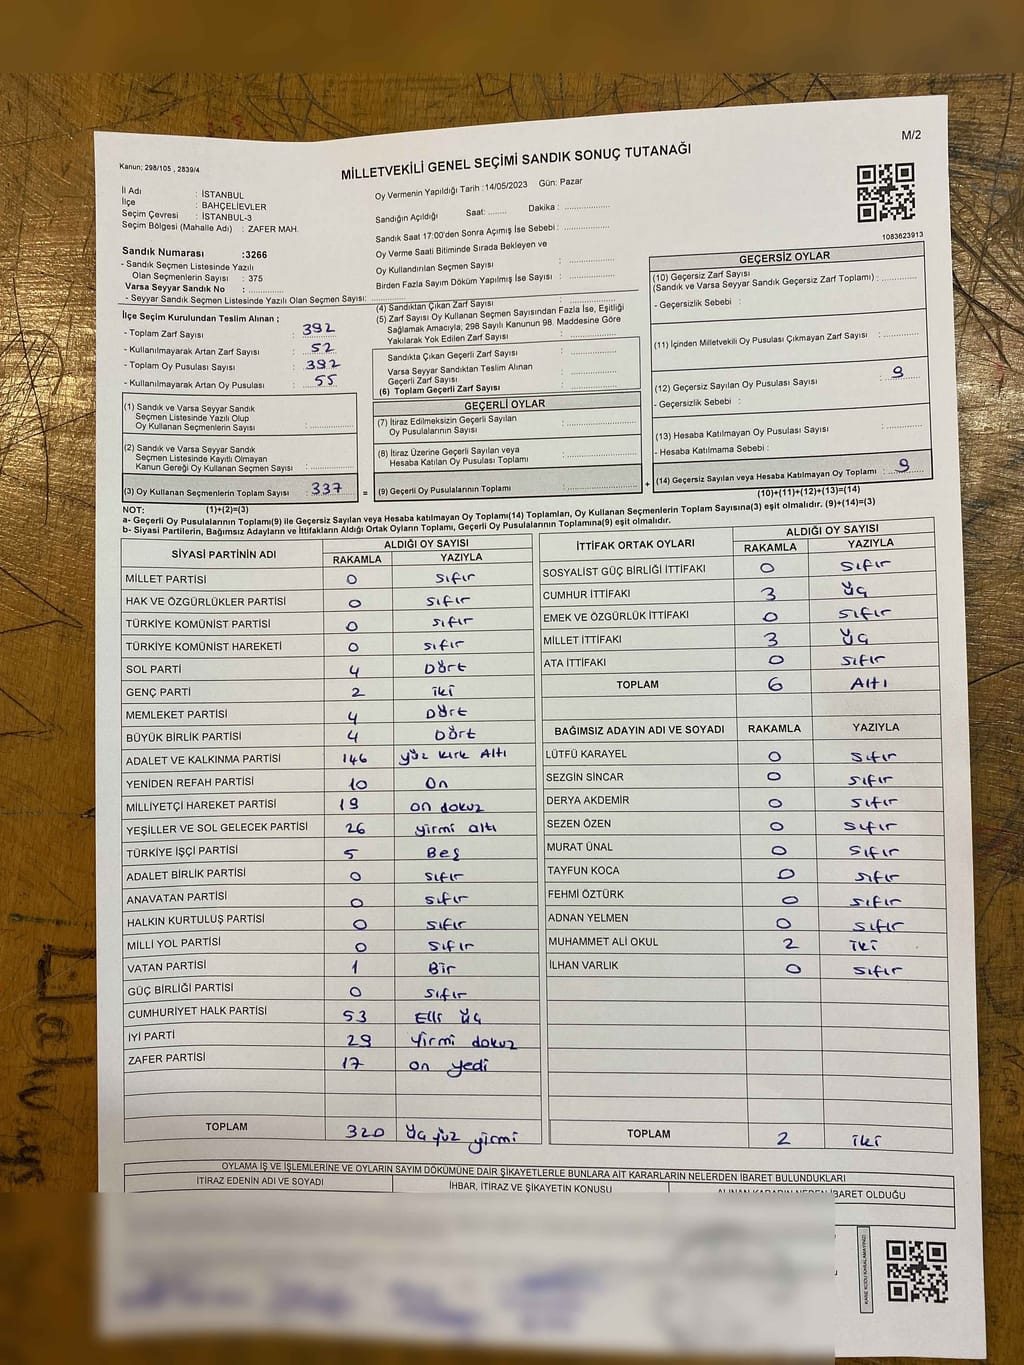 M/2
Kanun; 298/105 , 2839/4
MİLLETVEKİLİ GENEL SEÇİMİ SANDIK SONUÇ TUTANAĞI
İl Adı : İSTANBUL
İlçe : BAHÇELİEVLER
Seçim Çevresi : İSTANBUL-3
Seçim Bölgesi (Mahalle Adı) : ZAFER MAH.
Oy Vermenin Yapıldığı Tarih :14/05/2023 Gün: Pazar
Sandığın Açıldığı Saat: ........ Dakika : ....................
Sandık Saat 17:00'den Sonra Açımış İse Sebebi : ....................
Oy Verme Saati Bitiminde Sırada Bekleyen ve
Oy Kullandırılan Seçmen Sayısı : ....................
Birden Fazla Sayım Döküm Yapılmış İse Sayısı : ....................
1083623913
Sandık Numarası :3266
- Sandık Seçmen Listesinde Yazılı
Olan Seçmenlerin Sayısı : 375
Varsa Seyyar Sandık No : ............
- Seyyar Sandık Seçmen Listesinde Yazılı Olan Seçmen Sayısı: ....................
İlçe Seçim Kurulundan Teslim Alınan ;
- Toplam Zarf Sayısı : 392
- Kullanılmayarak Artan Zarf Sayısı : 52
- Toplam Oy Pusulası Sayısı : 392
- Kullanılmayarak Artan Oy Pusulası : 55
(1) Sandık ve Varsa Seyyar Sandık
Seçmen Listesinde Yazılı Olup
Oy Kullanan Seçmenlerin Sayısı : ............
(2) Sandık ve Varsa Seyyar Sandık
Seçmen Listesinde Kayıtlı Olmayan
Kanun Gereği Oy Kullanan Seçmen Sayısı : ............
(3) Oy Kullanan Seçmenlerin Toplam Sayısı : 337
(4) Sandıktan Çıkan Zarf Sayısı : ....................
(5) Zarf Sayısı Oy Kullanan Seçmen Sayısından Fazla İse, Eşitliği
Sağlamak Amacıyla; 298 Sayılı Kanunun 98. Maddesine Göre
Yakılarak Yok Edilen Zarf Sayısı : ....................
Sandıkta Çıkan Geçerli Zarf Sayısı : ....................
Varsa Seyyar Sandıktan Teslim Alınan
Geçerli Zarf Sayısı : ....................
(6) Toplam Geçerli Zarf Sayısı : ....................
GEÇERLİ OYLAR
(7) İtiraz Edilmeksizin Geçerli Sayılan
Oy Pusulalarının Sayısı : ....................
(8) İtiraz Üzerine Geçerli Sayılan veya
Hesaba Katılan Oy Pusulası Toplamı : ....................
= (9) Geçerli Oy Pusulalarının Toplamı : .................... +
GEÇERSİZ OYLAR
(10) Geçersiz Zarf Sayısı
(Sandık ve Varsa Seyyar Sandık Geçersiz Zarf Toplamı) : ............
- Geçersizlik Sebebi :
(11) İçinden Milletvekili Oy Pusulası Çıkmayan Zarf Sayısı : ............
(12) Geçersiz Sayılan Oy Pusulası Sayısı : 9
- Geçersizlik Sebebi :
(13) Hesaba Katılmayan Oy Pusulası Sayısı : ............
- Hesaba Katılmama Sebebi :
(14) Geçersiz Sayılan veya Hesaba Katılmayan Oy Toplamı : 9
NOT: (1)+(2)=(3)
(10)+(11)+(12)+(13)=(14)
a- Geçerli Oy Pusulalarının Toplamı(9) ile Geçersiz Sayılan veya Hesaba katılmayan Oy Toplamı(14) Toplamları, Oy Kullanan Seçmenlerin Toplam Sayısına(3) eşit olmalıdır. (9)+(14)=(3)
b- Siyasi Partilerin, Bağımsız Adayların ve İttifakların Aldığı Ortak Oyların Toplamı, Geçerli Oy Pusulalarının Toplamına(9) eşit olmalıdır.
SİYASİ PARTİNİN ADI ALDIĞI OY SAYISI
RAKAMLA YAZIYLA
MİLLET PARTİSİ 0 sıfır
HAK VE ÖZGÜRLÜKLER PARTİSİ 0 sıfır
TÜRKİYE KOMÜNİST PARTİSİ 0 sıfır
TÜRKİYE KOMÜNİST HAREKETİ 0 sıfır
SOL PARTİ 4 Dört
GENÇ PARTİ 2 iki
MEMLEKET PARTİSİ 4 Dört
BÜYÜK BİRLİK PARTİSİ 4 Dört
ADALET VE KALKINMA PARTİSİ 146 yüz kırk Altı
YENİDEN REFAH PARTİSİ 10 On
MİLLİYETÇİ HAREKET PARTİSİ 19 on dokuz
YEŞİLLER VE SOL GELECEK PARTİSİ 26 yirmi altı
TÜRKİYE İŞÇİ PARTİSİ 5 Beş
ADALET BİRLİK PARTİSİ 0 sıfır
ANAVATAN PARTİSİ 0 sıfır
HALKIN KURTULUŞ PARTİSİ 0 sıfır
MİLLİ YOL PARTİSİ 0 sıfır
VATAN PARTİSİ 1 Bir
GÜÇ BİRLİĞİ PARTİSİ 0 sıfır
CUMHURİYET HALK PARTİSİ 53 Elli üç
İYİ PARTİ 29 Yirmi dokuz
ZAFER PARTİSİ 17 on yedi
TOPLAM 320 üç yüz yirmi
İTTİFAK ORTAK OYLARI ALDIĞI OY SAYISI
RAKAMLA YAZIYLA
SOSYALİST GÜÇ BİRLİĞİ İTTİFAKI 0 sıfır
CUMHUR İTTİFAKI 3 üç
EMEK VE ÖZGÜRLÜK İTTİFAKI 0 sıfır
MİLLET İTTİFAKI 3 üç
ATA İTTİFAKI 0 sıfır
TOPLAM 6 Altı
BAĞIMSIZ ADAYIN ADI VE SOYADI RAKAMLA YAZIYLA
LÜTFÜ KARAYEL 0 sıfır
SEZGİN SİNCAR 0 sıfır
DERYA AKDEMİR 0 sıfır
SEZEN ÖZEN 0 sıfır
MURAT ÜNAL 0 sıfır
TAYFUN KOCA 0 sıfır
FEHMİ ÖZTÜRK 0 sıfır
ADNAN YELMEN 0 sıfır
MUHAMMET ALİ OKUL 2 iki
İLHAN VARLIK 0 sıfır
TOPLAM 2 iki
OYLAMA İŞ VE İŞLEMLERİNE VE OYLARIN SAYIM DÖKÜMÜNE DAİR ŞİKAYETLERLE BUNLARA AİT KARARLARIN NELERDEN İBARET BULUNDUKLARI
İTİRAZ EDENİN ADI VE SOYADI İHBAR, İTİRAZ VE ŞİKAYETİN KONUSU ALINAN KARARIN NEDEN İBARET OLDUĞU
KARE KODU KARALAMAYINIZ!